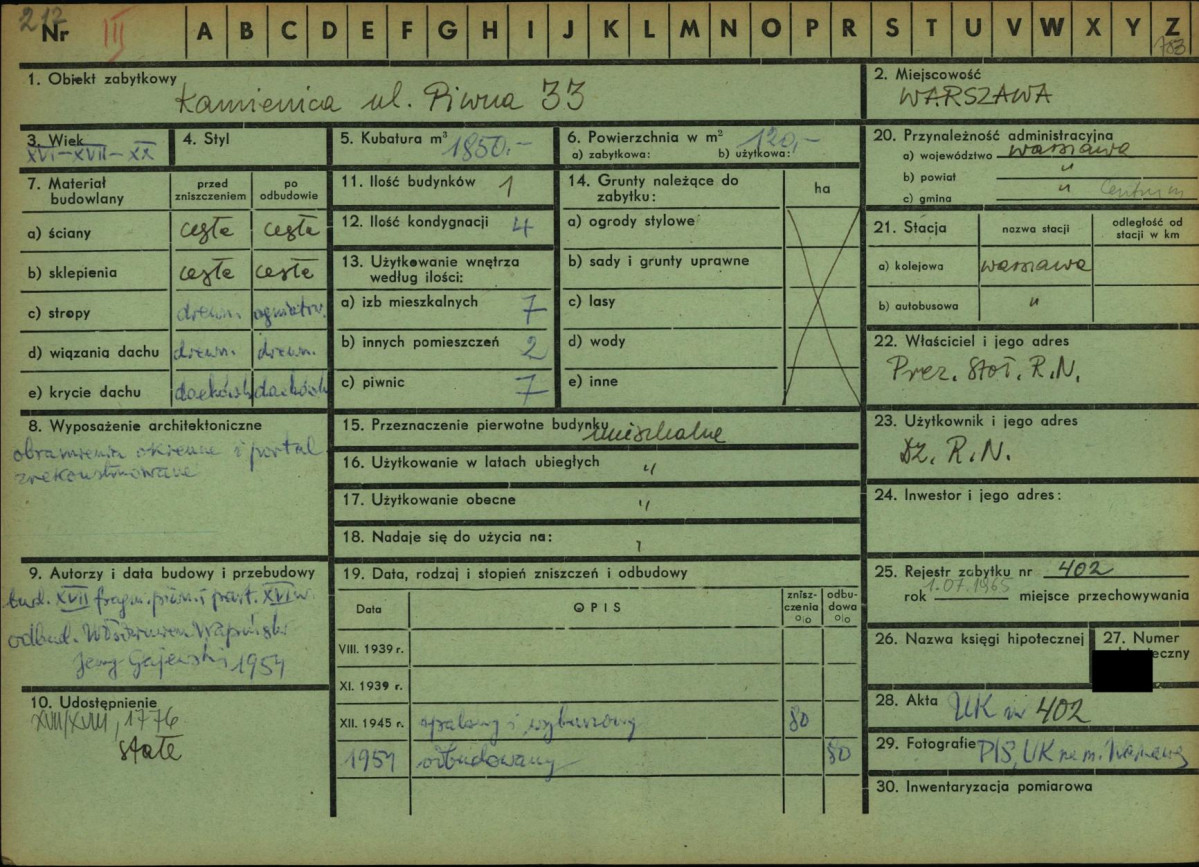 212
Nr III A B C D E F G H I J K L M N O P R S T U V W X Y Z
703
1. Obiekt zabytkowy
Kamienica ul. Piwna 33
2. Miejscowość
WARSZAWA
3. Wiek
XVI-XVII-XX
4. Styl
5. Kubatura m³ 1850.-
6. Powierzchnia w m² 120,-
a) zabytkowa: b) użytkowa:
20. Przynależność administracyjna
a) województwo Warszawa
b) powiat "
c) gmina " Centrum
7. Materiał budowlany
przed zniszczeniem
po odbudowie
a) ściany cegła cegła
b) sklepienia cegła cegła
c) stropy drewn. ogniotrw.
d) wiązania dachu drewn. drewn.
e) krycie dachu dachówk dachówk
11. Ilość budynków 1
12. Ilość kondygnacji 4
13. Użytkowanie wnętrza
według ilości:
a) izb mieszkalnych 7
b) innych pomieszczeń 2
c) piwnic 7
14. Grunty należące do
zabytku:
ha
a) ogrody stylowe
b) sady i grunty uprawne
c) lasy
d) wody
e) inne
21. Stacja
nazwa stacji
odległość od
stacji w km
a) kolejowa Warszawa
b) autobusowa "
22. Właściciel i jego adres
Prez. Stoł. R.N.
8. Wyposażenie architektoniczne
obramienia okienne i portal
zrekonstruowane
15. Przeznaczenie pierwotne budynku mieszkalne
16. Użytkowanie w latach ubiegłych "
17. Użytkowanie obecne "
18. Nadaje się do użycia na:
23. Użytkownik i jego adres
Dz. R.N.
24. Inwestor i jego adres:
9. Autorzy i data budowy i przebudowy
bud. XVII fragm. piwn. i part. XVI w.
odbud. Włodzimierz Wapiński
Jerzy Gajewski 1954
10. Udostępnienie
XVII/XVIII, 1776
stałe
19. Data, rodzaj i stopień zniszczeń i odbudowy
Data
OPIS
znisz-
czenia
%
odbu-
dowa
%
VIII. 1939 r.
XI. 1939 r.
XII. 1945 r. spalony i wyburzony 80
1954 odbudowany 80
25. Rejestr zabytku nr 402
1.07.1965
rok miejsce przechowywania
26. Nazwa księgi hipotecznej
27. Numer
28. Akta UK nr 402
29. Fotografie PIS, UK na m. Warszawę
30. Inwentaryzacja pomiarowa